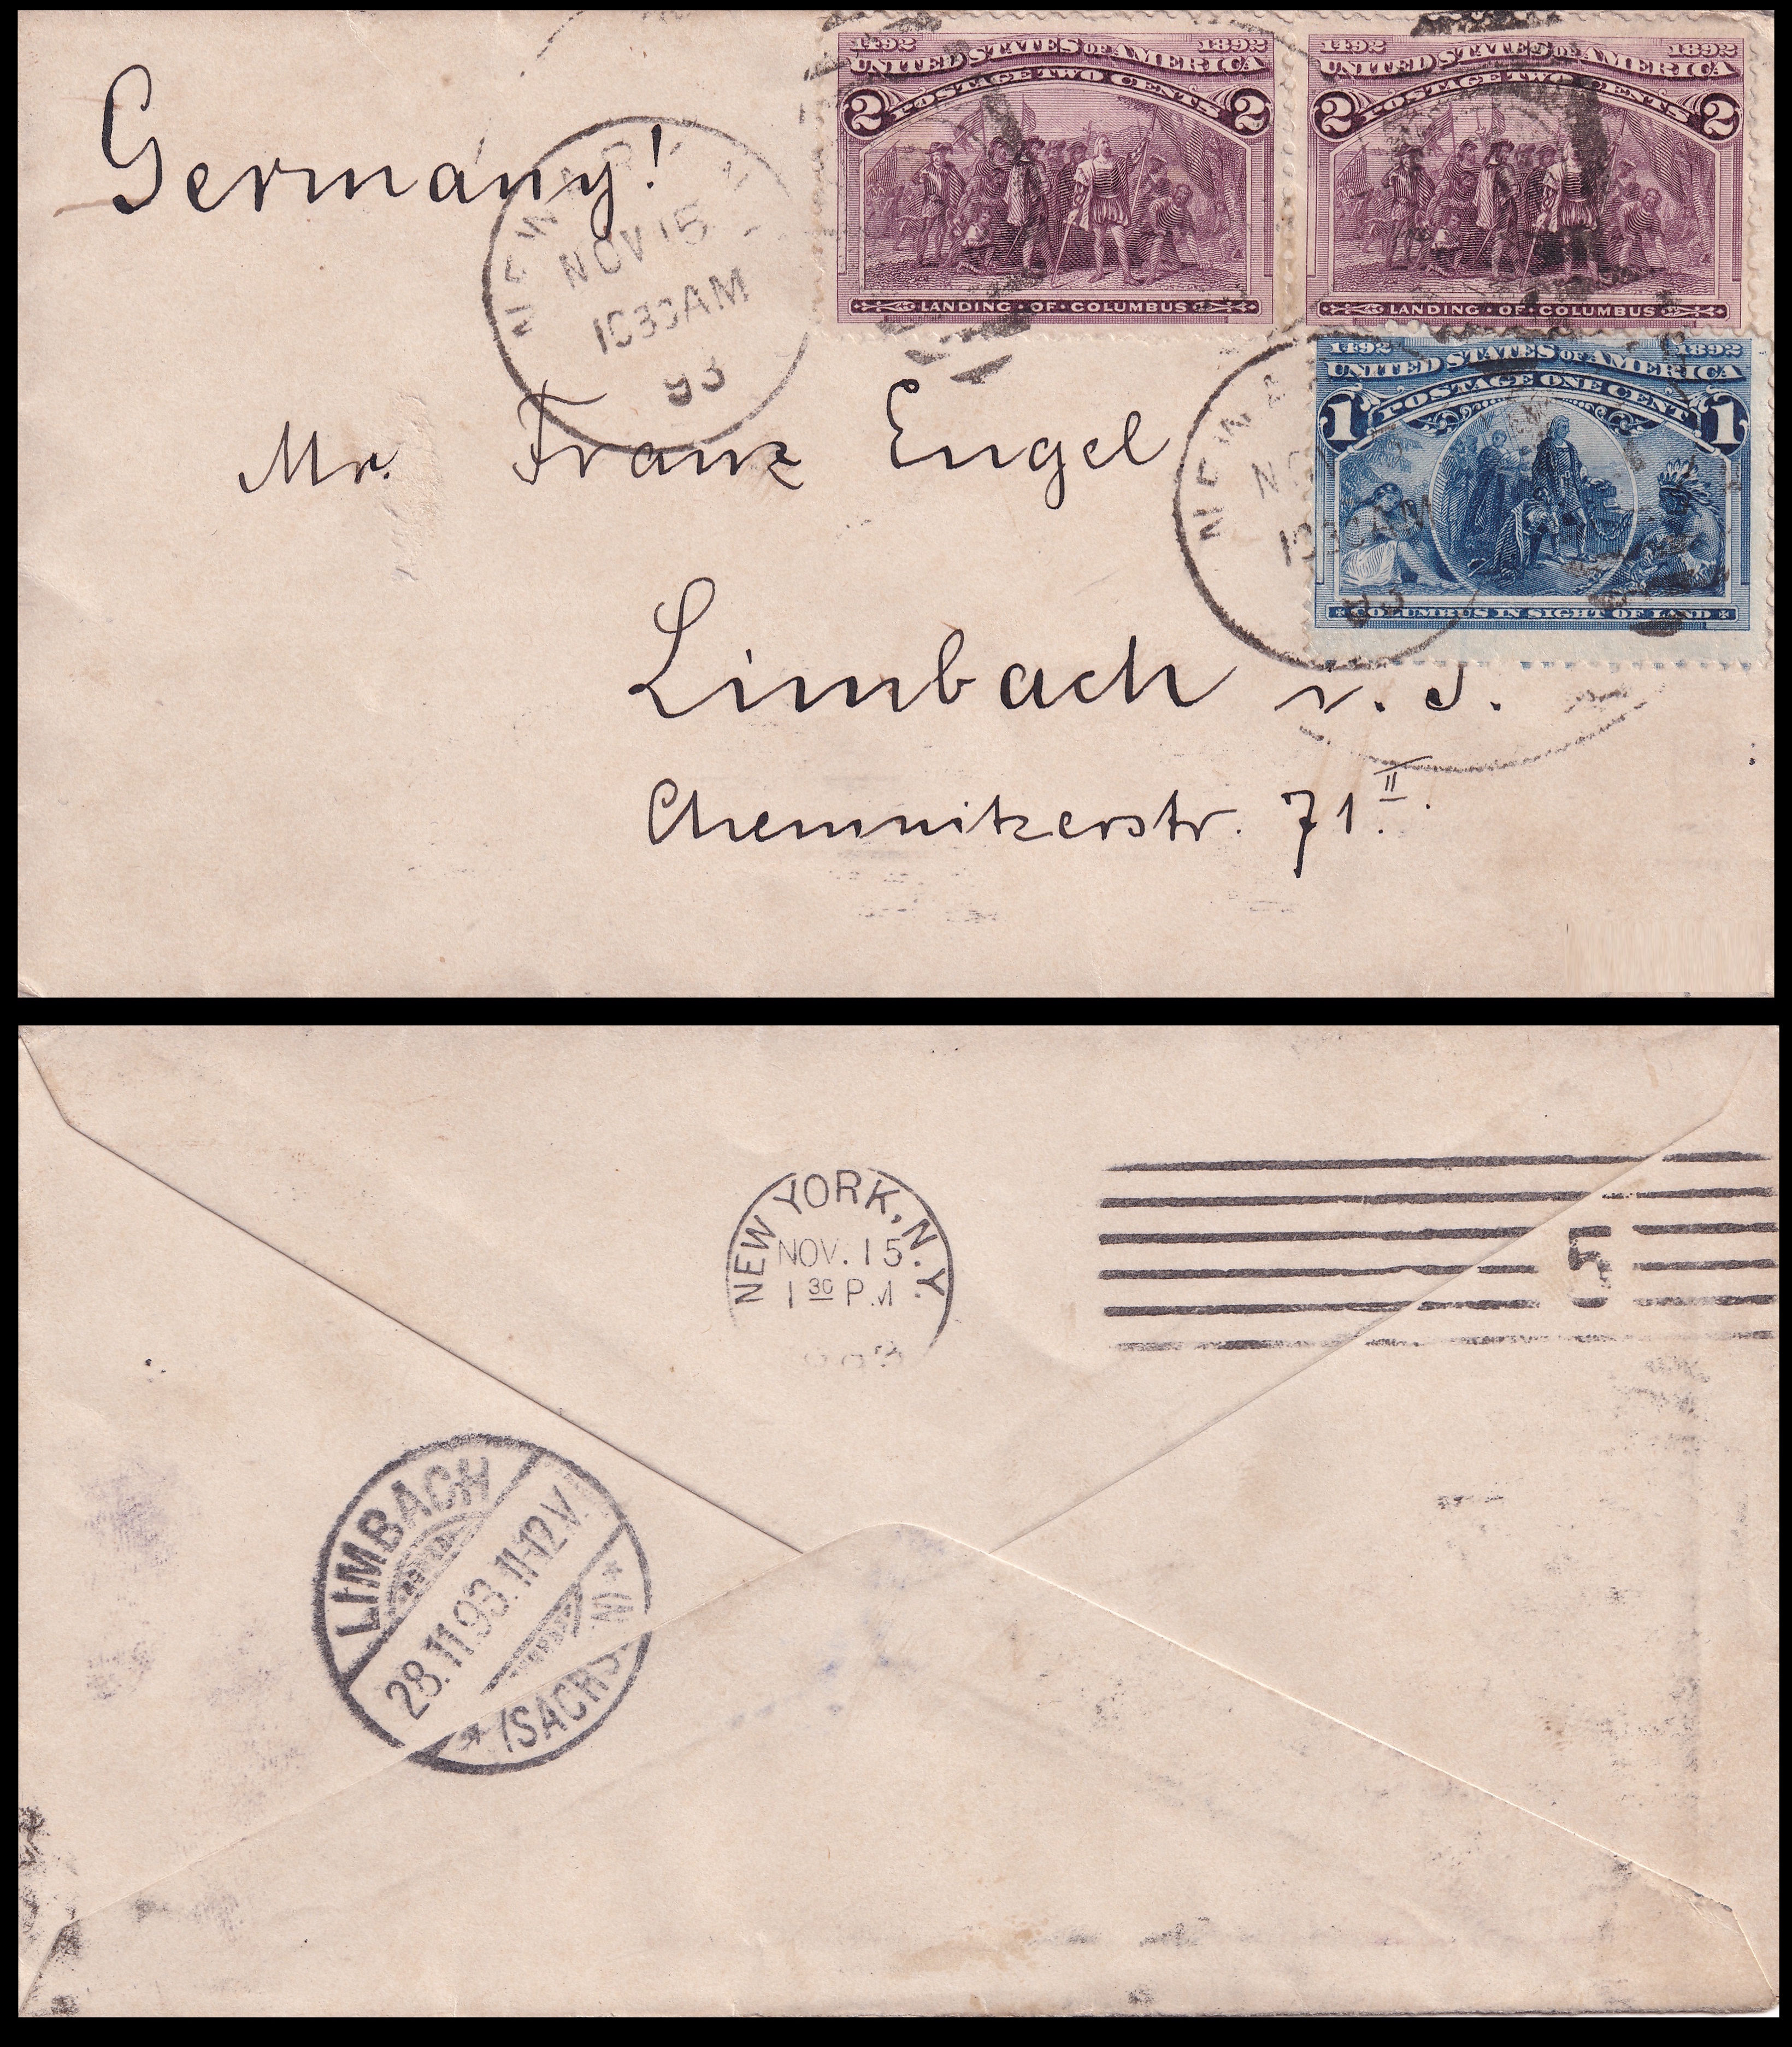 1492 1892
UNITED STATES OF AMERICA
POSTAGE TWO CENTS
2 2
LANDING · OF · COLUMBUS
1492 1892
UNITED STATES OF AMERICA
POSTAGE TWO CENTS
2 2
LANDING · OF · COLUMBUS
1492 1892
UNITED STATES OF AMERICA
POSTAGE ONE CENT
1 1
COLUMBUS IN SIGHT OF LAND
Germany!
NEWARK N
NOV 15
1030AM
93
NEWA
1030AM
Mr. Franz Engel
Limbach i. S.
Chemnitzerstr. 71.II.
NEW YORK, N.Y.
NOV. 15.
1 30 P.M
5
LIMBACH
28.11.93.11-12V.
* /SACHSEN/ *